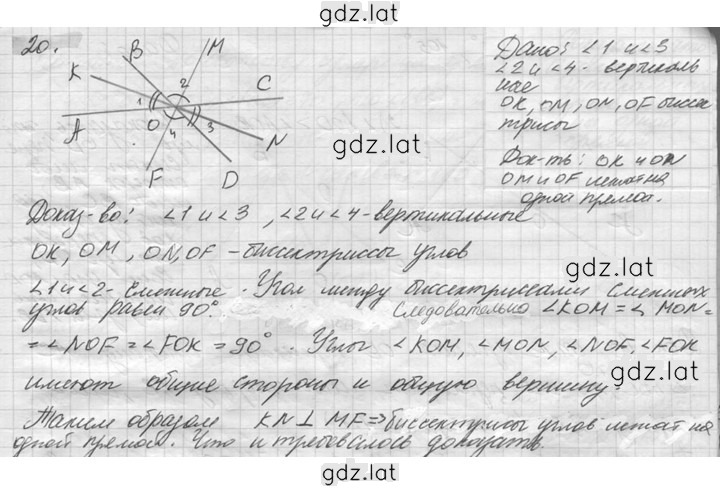 gdz.lat
20.
B
M
K
2
C
1
A
O
3
4
N
F
D
Дано: ∠1 и ∠3
∠2 и ∠4 - вертикаль
ные
OK, OM, ON, OF биссе
трисы
Док-ть: OK и ON
OM и OF лежат на
одной прямой.
gdz.lat
Доказ-во: ∠1 и ∠3, ∠2 и ∠4 - вертикальные
OK, OM, ON, OF - биссектриссы углов
gdz.lat
∠1 и ∠2 - смежные. Угол между биссектриссами смежных
углов равен 90°. Следовательно ∠KOM = ∠MON =
= ∠NOF = ∠FOK = 90°. Углы ∠KOM, ∠MON, ∠NOF, ∠FOK
имеют общие стороны и общую вершину.
gdz.lat
Таким образом KN ⊥ MF ⇒ биссектрисы углов лежат на
одной прямой. Что и требовалось доказать.
gdz.lat